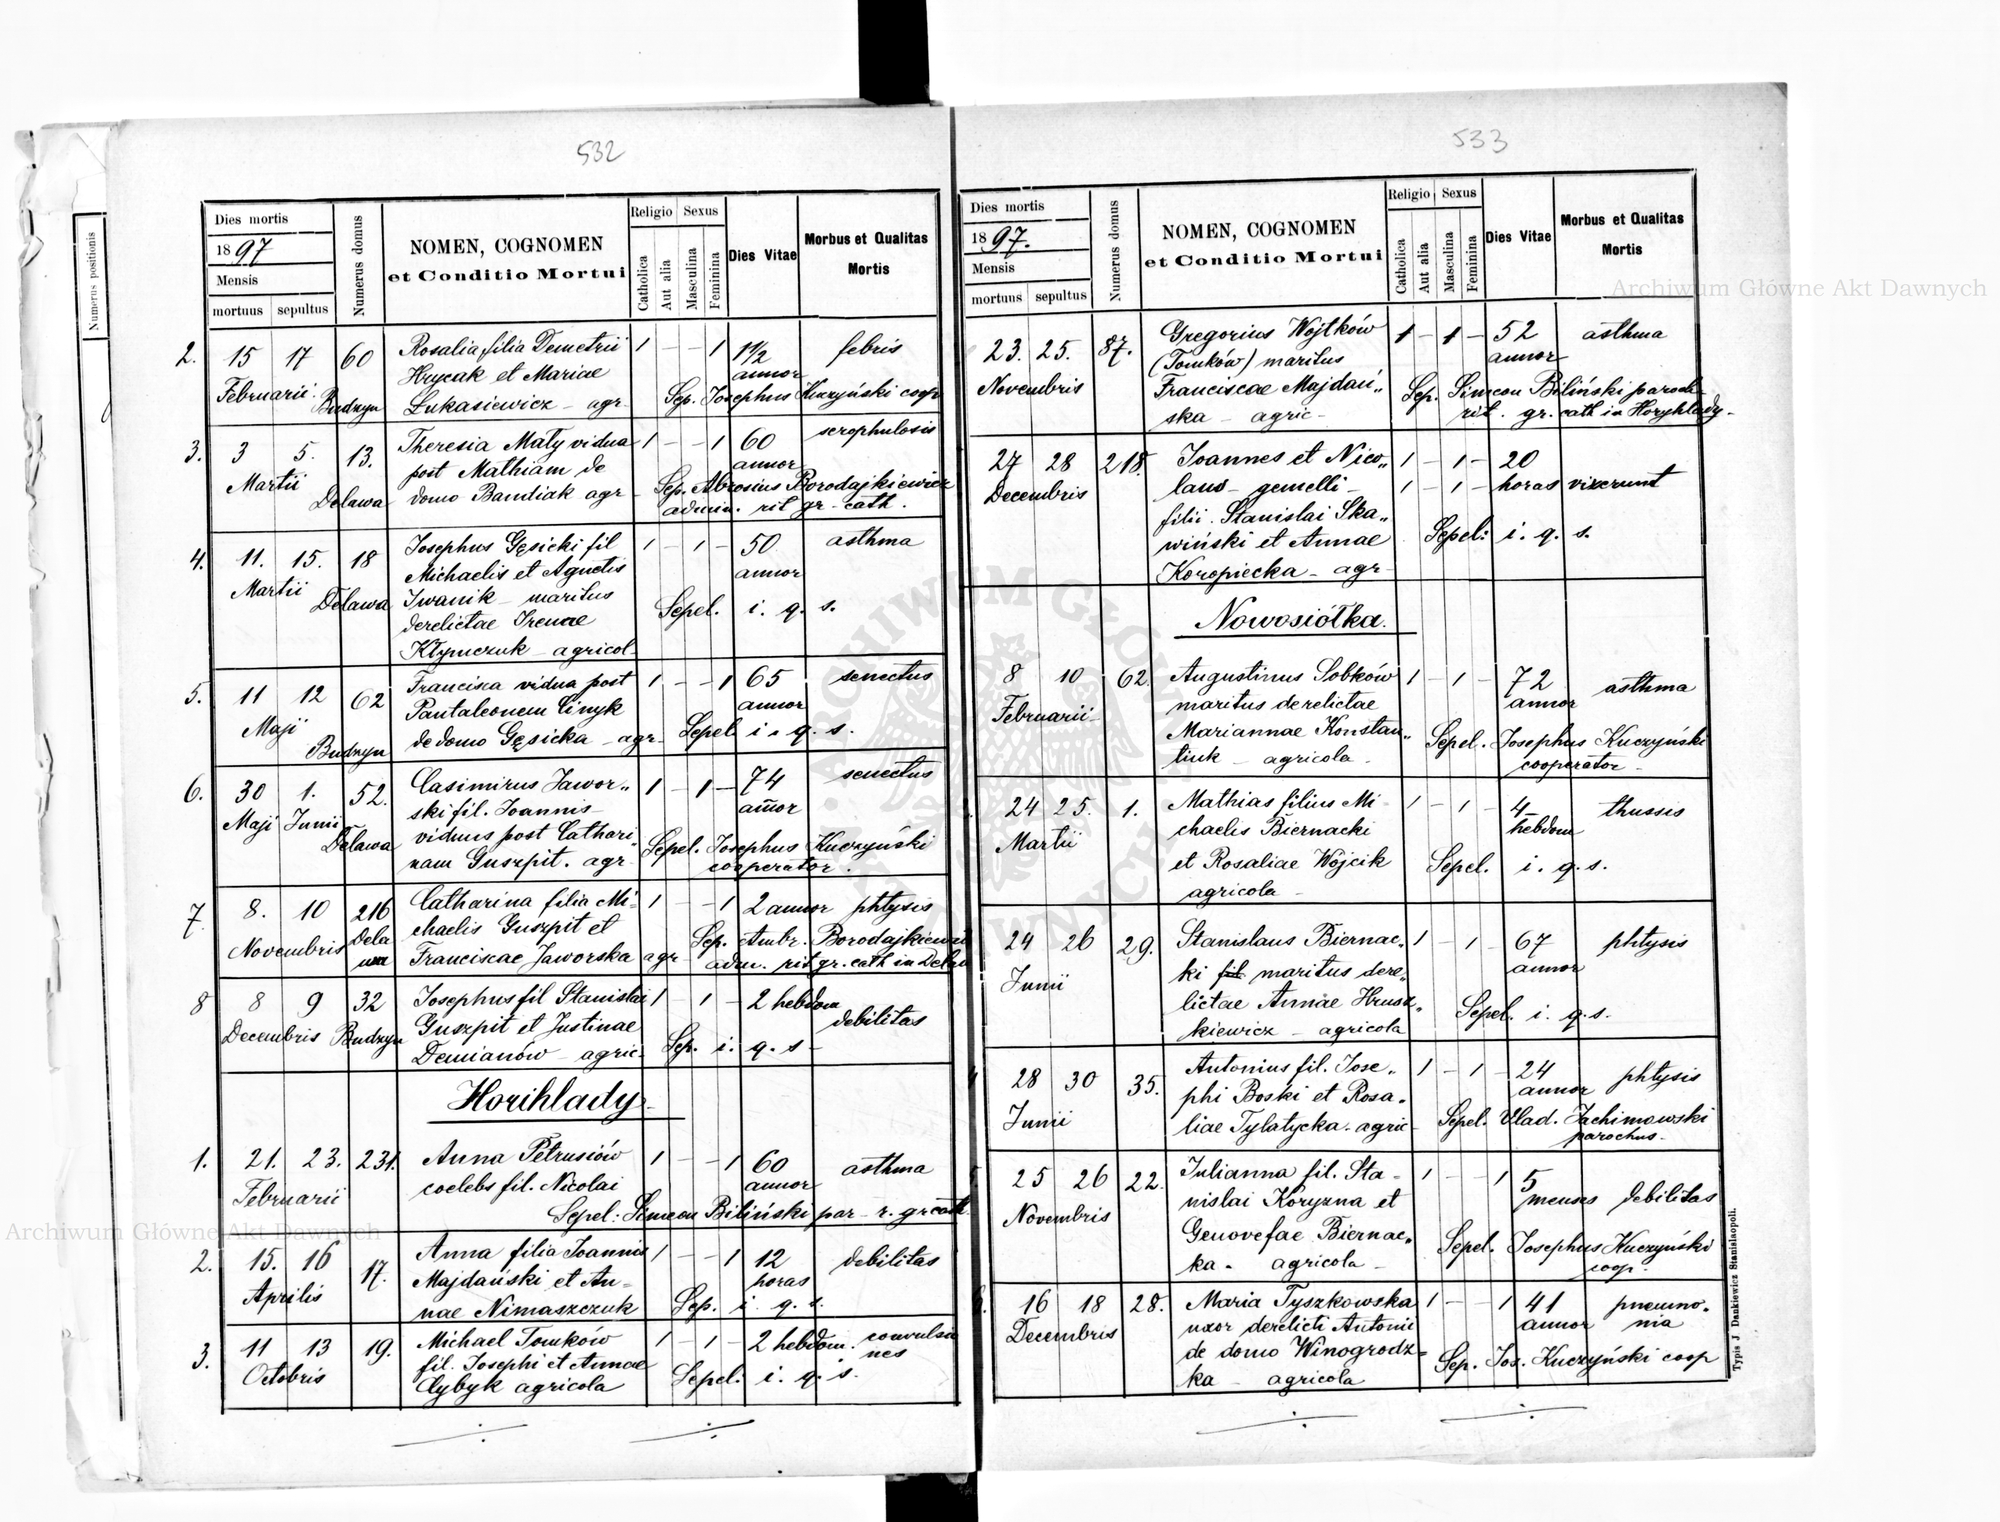 532
Numerus positionis
Dies mortis
1897
Mensis
mortuus sepultus
Numerus domus
NOMEN, COGNOMEN
et Conditio Mortui
Religio Sexus
Catholica
Aut alia
Masculina
Feminina
Dies Vitae
Morbus et Qualitas
Mortis
2. 15 17 60 Rosalia filia Demetrii 1 – – 1 1 1/2 febris
Februarii Budzyn Hrycak et Mariae annor
Łukasiewicz – agr- Sep. Josephus Kuczyński coop
3. 3 5. 13. Theresia Maty vidua 1 – – 1 60 scrophulosis
Martii post Mathiam de annor
Delawa domo Bandiak agr – Sep. Abrosius Borodajkiewicz
admin. rit gr. cath.
4. 11. 15. 18 Josephus Gęsicki fil 1 – 1 – 50 asthma
Martii Michaelis et Agnetis annor
Delawa Iwanik – maritus Sepel. i. q. s.
derelictae Irenae
Kłymczuk – agricol-
5. 11 12 62 Francisca vidua post 1 – – 1 65 senectus
Maji Pantaleonem Cinyk annor
Budzyn de domo Gęsicka – agr- Sepel i. q. s.
6. 30 1. 52. Casimirus Jawor„ 1 – 1 – 74 senectus
Maji Junii ski fil. Joannis annor
Delawa viduus post Cathari„ Sepel. Josephus Kuczyński
nam Guszpit. agr- cooperator.
7. 8. 10 216 Catharina filia Mi= 1 – – 1 2 annor phtysis
Novembris Delawa chaelis Guszpit et Sep. Ambr. Borodajkiewicz
Franciscae Jaworska agr – adm. rit gr. cath in Delawa
8 8 9 32 Josephus fil Stanislai 1 – 1 – 2 hebdom
Decembris Budzyn Guszpit et Justinae debilitas
Demianów – agric- Sep. i. q. s –
Horihlady
1. 21. 23. 231. Anna Petrusiów 1 – – 1 60 asthma
Februarii coelebs fil. Nicolai annor
Sepel: Simeon Biliński par – r. gr cath.
2. 15. 16 17. Anna filia Joannis 1 – – 1 12 debilitas
Aprilis Majdański et An= horas
nae Nimaszczuk Sep. i. q. s.
3. 11 13 19. Michael Tomków 1 – 1 – 2 hebdom. convulsio
nes
Octobris fil. Josephi et Annae
Cybyk agricola Sepel: i. q. s.
533
Dies mortis
1897.
Mensis
mortuus sepultus
Numerus domus
NOMEN, COGNOMEN
et Conditio Mortui
Religio Sexus
Catholica
Aut alia
Masculina
Feminina
Dies Vitae
Morbus et Qualitas
Mortis
23. 25. 87. Gregorius Wojtków 1 – 1 – 52 asthma
(Tomków) maritus annor
Novembris Franciscae Majdań„ Sep. Simeon Biliński paroch
ska – agric – rit. gr. cath in Horyhlady-
27 28 218. Joannes et Nico„ 1 – 1 – 20
Decembris laus – gemelli – 1 – 1 – horas vixerunt
filii. Stanislai Ska„
wiński et Annae Sepel: i. q. s.
Koropiecka – agr-
Nowosiółka.
8 10 62. Augustinus Sobków 1 – 1 – 72 asthma
Februarii – maritus derelictae annor
Mariannae Konstan„ Sepel. Josephus Kuczyński
tiuk – agricola – cooperator –
24 25. 1. Mathias filius Mi- 1 – 1 – 4 thussis
Martii chaelis Biernacki hebdom
et Rosaliae Wójcik Sepel. i. q. s.
agricola –
24 26 29. Stanislaus Biernac„ 1 – 1 – 67 phtysis
Junii ki fil maritus dere„ annor
lictae Annae Hrusz„ Sepel. i. q. s.
kiewicz – agricola
4 28 30 35. Antonius fil. Jose„ 1 – 1 – 24 phtysis
Junii phi Boski et Rosa„ annor
liae Tylatycka. agric – Sepel. Vlad. Jachimowski
parochus –
5. 25 26 22. Julianna fil. Sta- 1 – – 1 5 menses debilitas
Novembris nislai Koryzna et
Genovefae Biernac„ Sepel. Josephus Kuczyński
ka – agricola – coop.
6. 16 18 28. Maria Tyszkowska 1 – – 1 41 pneumo„
Decembris uxor derelicti Antonii annor nia
de domo Winogrodz= Sep. Jos. Kuczyński coop
ka – agricola
Typis J Dankiewicz Stanislaopoli.
Archiwum Główne Akt Dawnych
Archiwum Główne Akt Dawnych